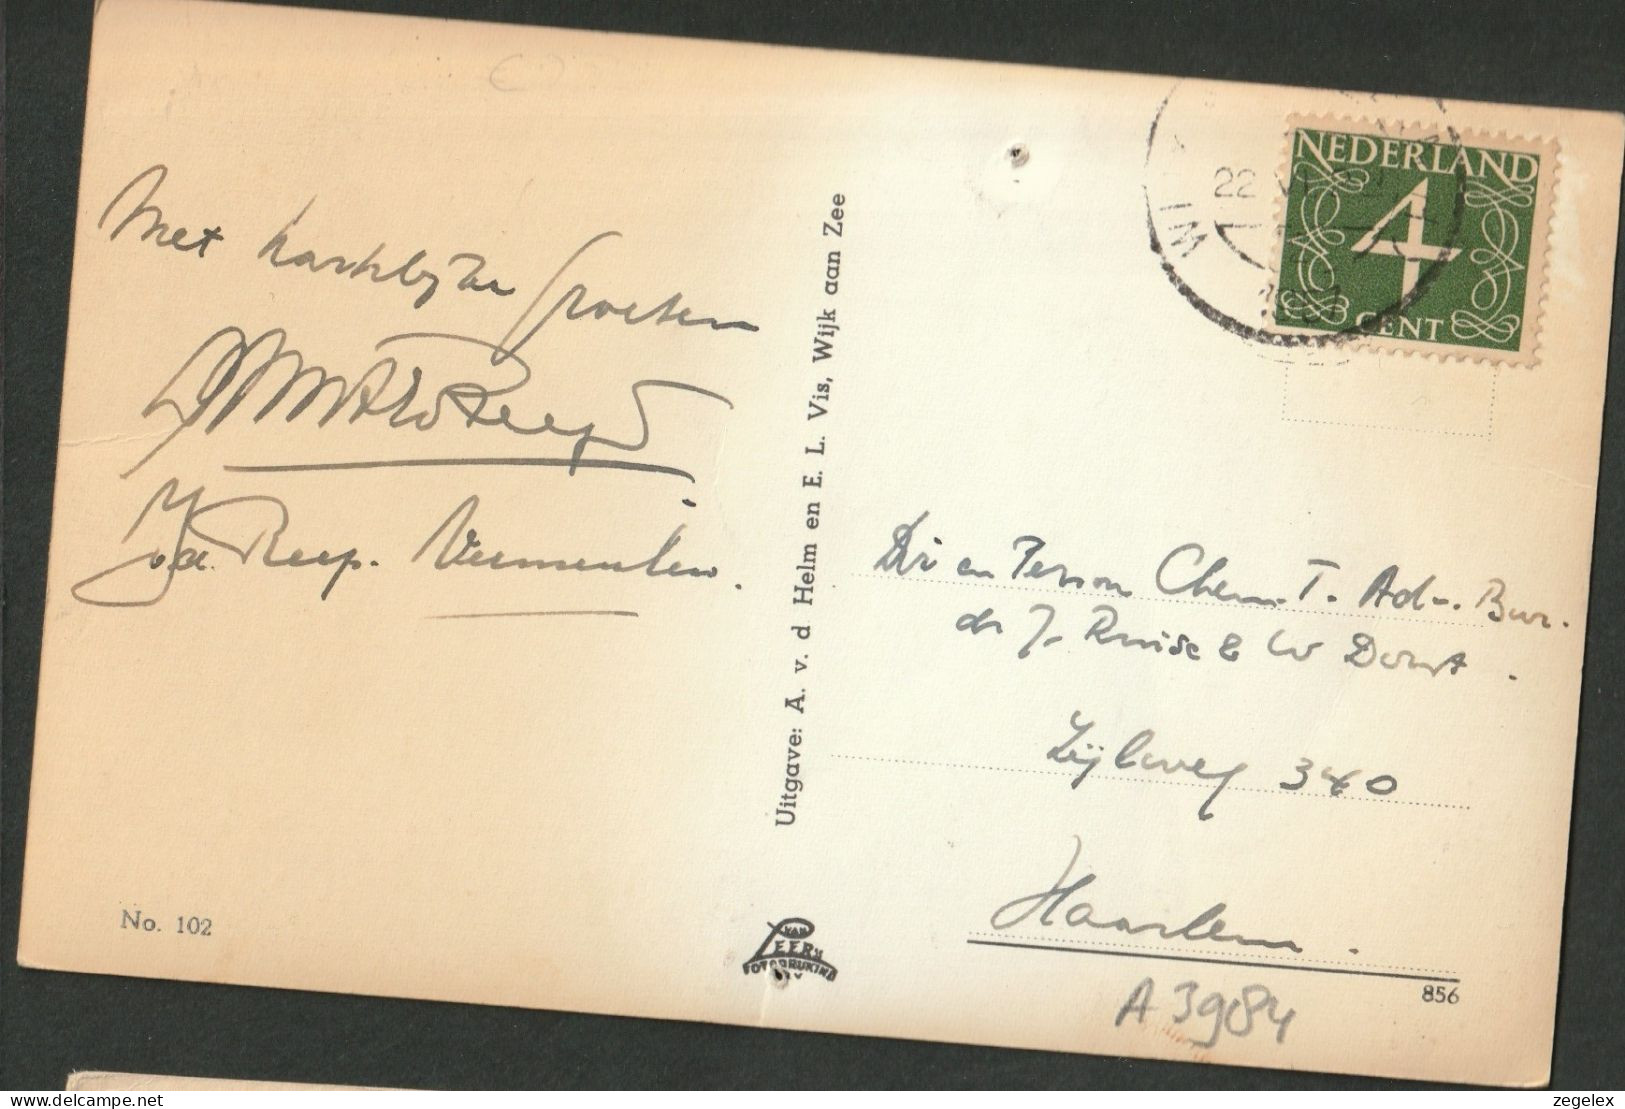 Met hartelijke Groeten
Reep. Vermeulen.
No. 102
Uitgave: A. v. d Helm en E. L. Vis, Wijk aan Zee
VAN
LEER'S
FOTODRUKIND
N.V.
NEDERLAND
4
CENT
22
WI
Dir en Person Chem. T. Adv. Bur.
dr J. Ruise & W Dorst.
Zijlweg 340
Haarlem.
856
A 3984
zegelex
delcampe.net